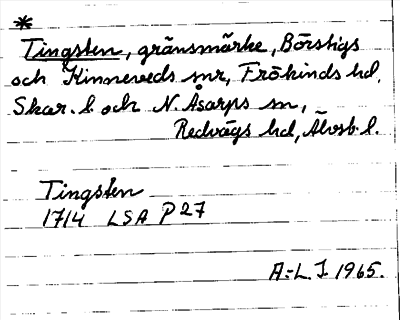 *
Tingsten, gränsmärke, Börstigs
och Kinneveds snr, Frökinds hd,
Skar. l. och N. Åsarps sn,
Redvägs hd, Älvsb. l.
Tingsten
1714 LSA P27
A-L.J. 1965.